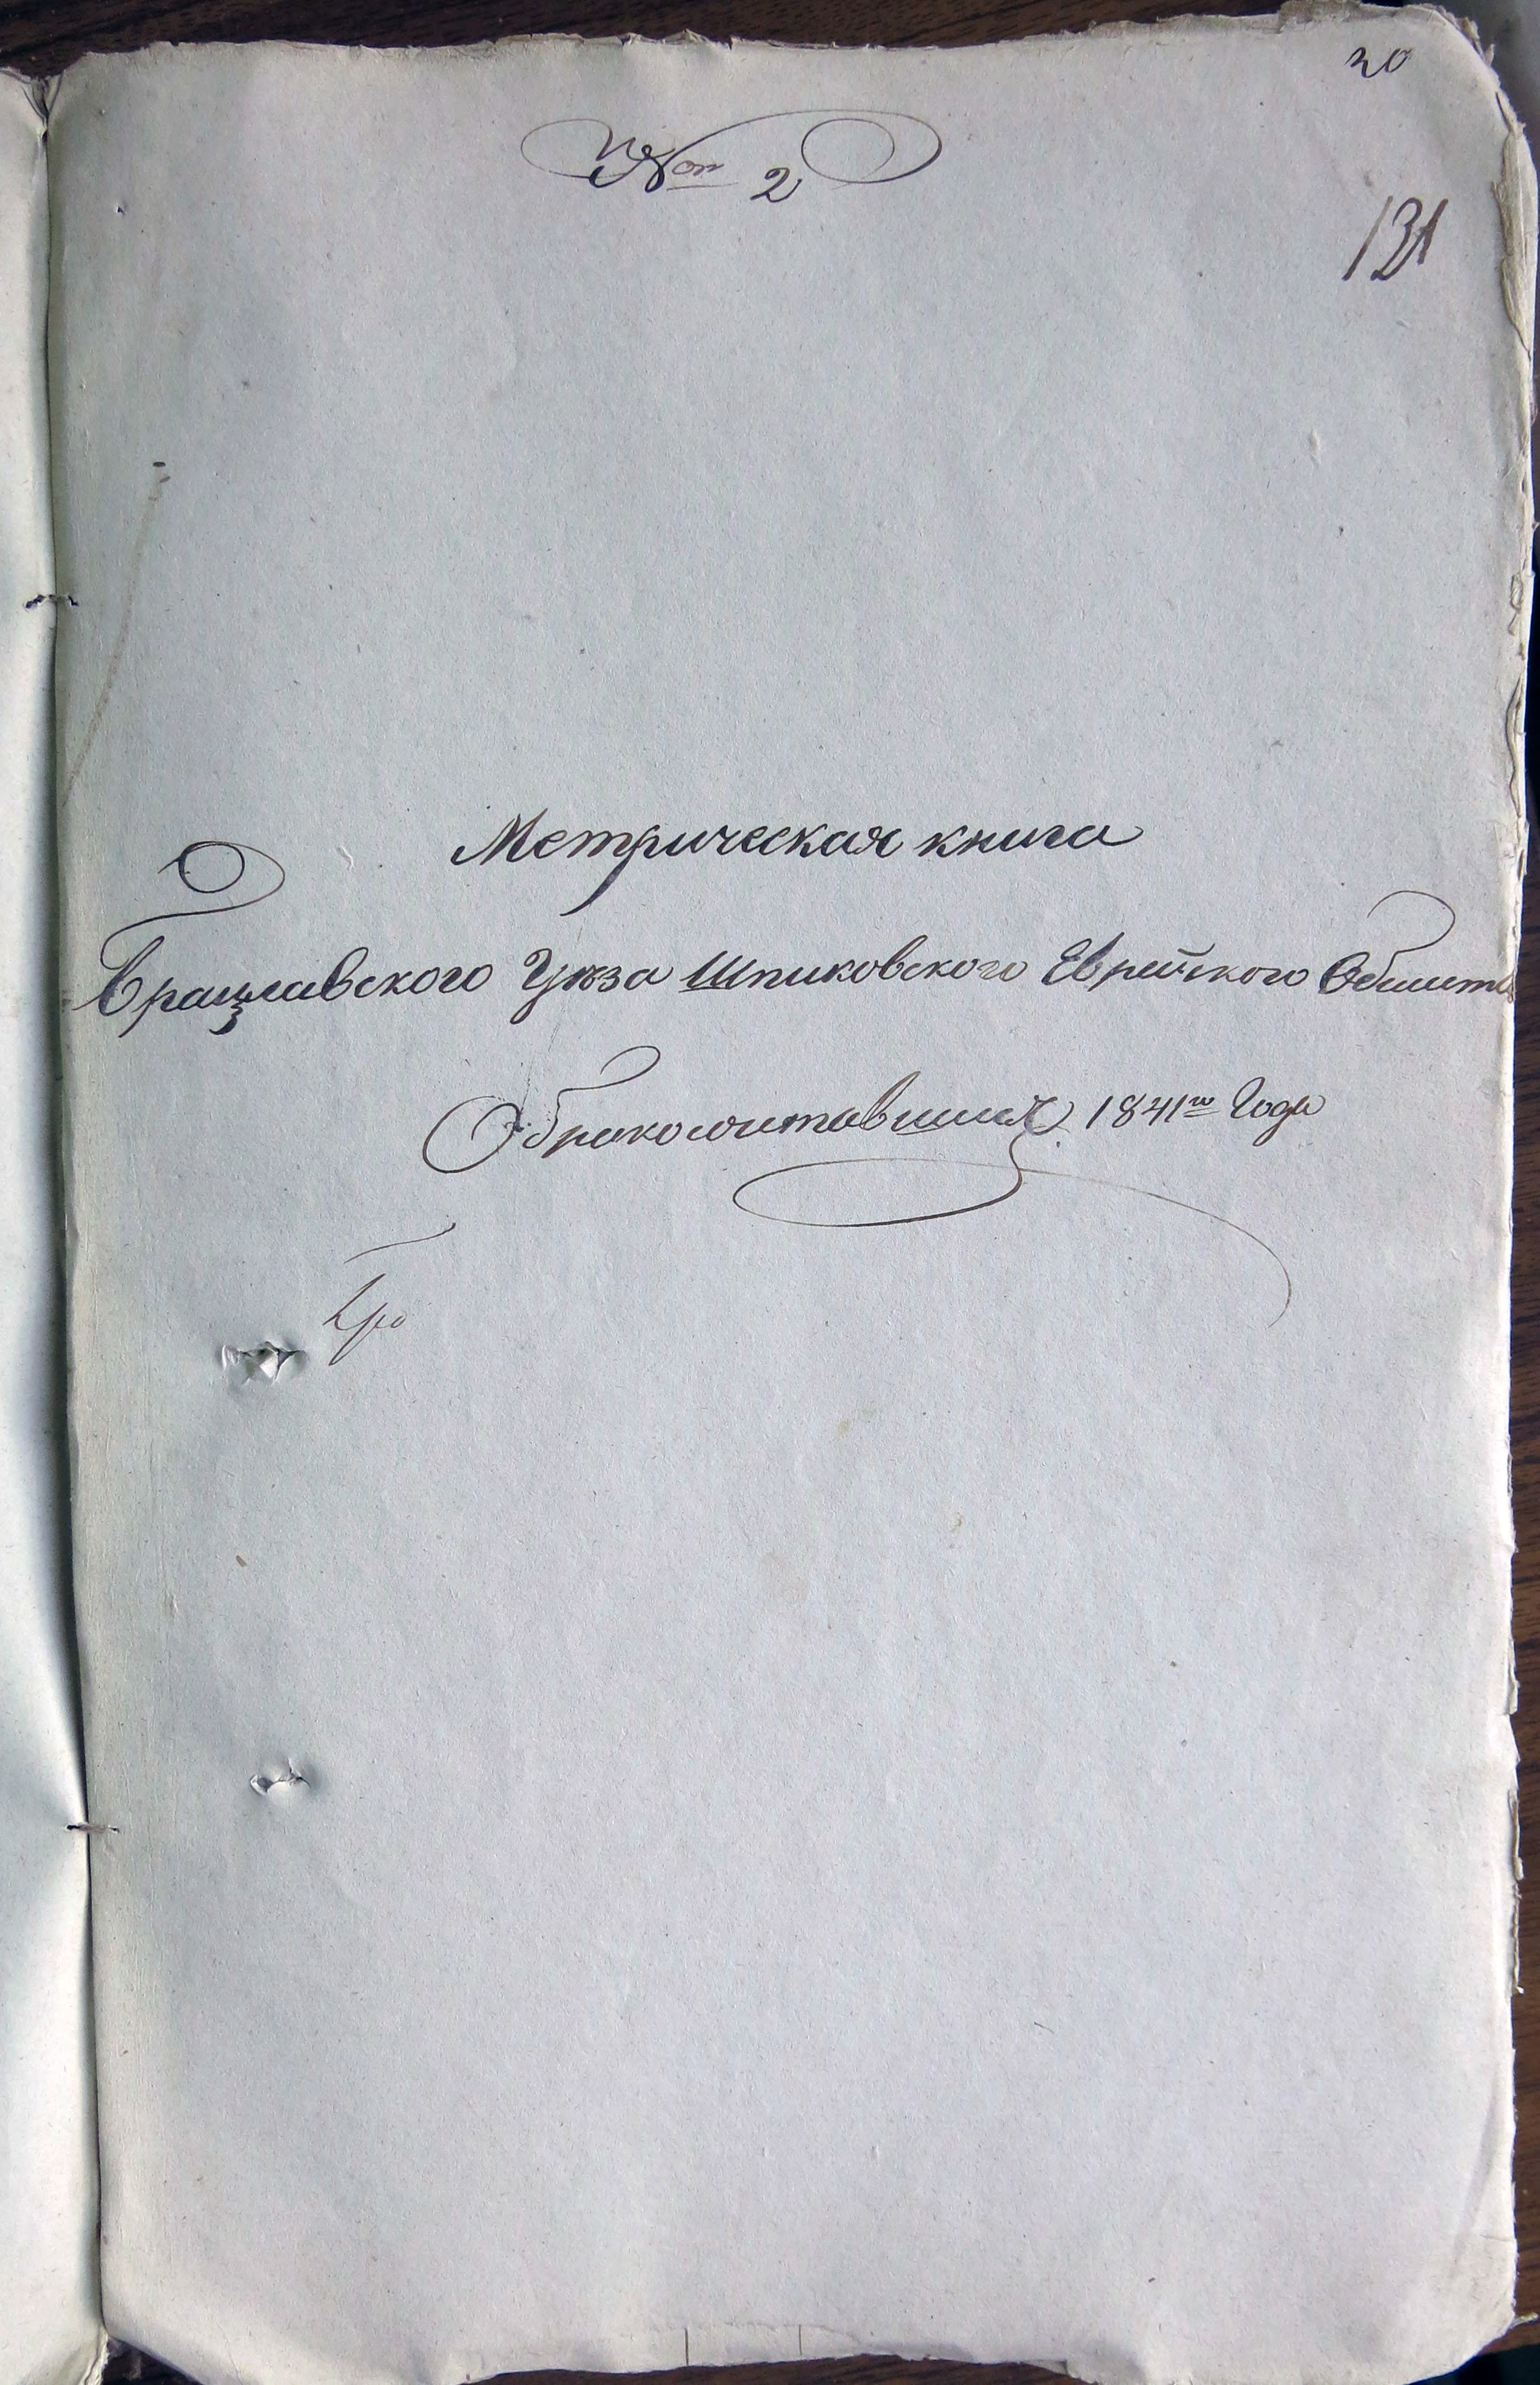 20
№ 2
131
Метрическая книга
Брацлавского Уѣзда Шпиковского Еврейского
Обракосочетавшихся 1841го Года